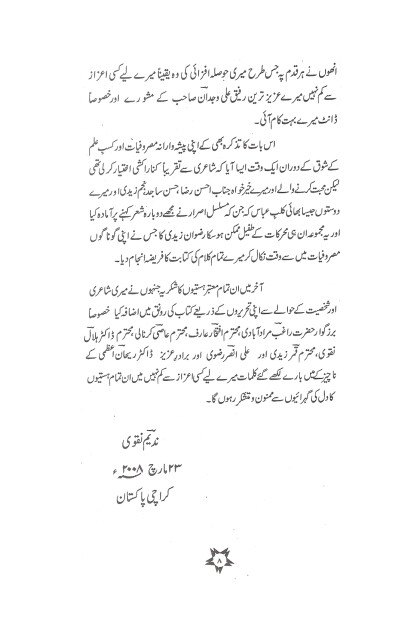 انھوں نے ہر قدم پہ جس طرح میری حوصلہ افزائی کی وہ یقیناً میرے لیے کسی اعزاز
سے کم نہیں میرے عزیز ترین رفیق علی وجدان صاحب کے مشورے اور خصوصاً
ڈانٹ میرے بہت کام آئی۔
اس بات کا تذکرہ بھی کے اپنی پیشہ وارانہ مصروفیات اور کسب علم
کے شوق کے دوران ایک وقت ایسا آیا کہ شاعری سے تقریباً کنارہ کشی اختیار کر لی تھی
لیکن محبت کرنے والے اور میرے خیر خواہ جناب احسن رضا، حسن ساجد، نجم زیدی اور میرے
دوستوں جیسا بھائی کلب عباس کہ جن کہ مسلسل اصرار نے مجھے دوبارہ شعر کہنے پر آمادہ کیا
اور یہ مجموعہ ان ہی محرکات کے طفیل ممکن ہو سکا رضوان زیدی کا جس نے اپنی گوناگوں
مصروفیات میں سے وقت نکال کر میرے تمام کلام کی کتابت کا فریضہ انجام دیا۔
آخر میں ان تمام معتبر ہستیوں کا شکریہ جنہوں نے میری شاعری
اور شخصیت کے حوالے سے اپنی تحریروں کے ذریعے کتاب کی رونق میں اضافہ کیا خصوصاً
بزرگوار حضرت راغب مراد آبادی، محترم افتخار عارف، محترم عاصی کرنالی، محترم ڈاکٹر ہلال
نقوی، محترم قمر زیدی اور علی انصر رضوی اور برادرِ عزیز ڈاکٹر ریحان اعظمی کے
ناچیز کے میں بارے لکھے گئے کلمات میرے لیے کسی اعزاز سے کم نہیں میں ان تمام ہستیوں
کا دل کی گہرائیوں سے ممنون و متشکر رہوں گا۔
ندیم نقوی
۲۳ مارچ ۲۰۰۸ء
کراچی پاکستان
۸